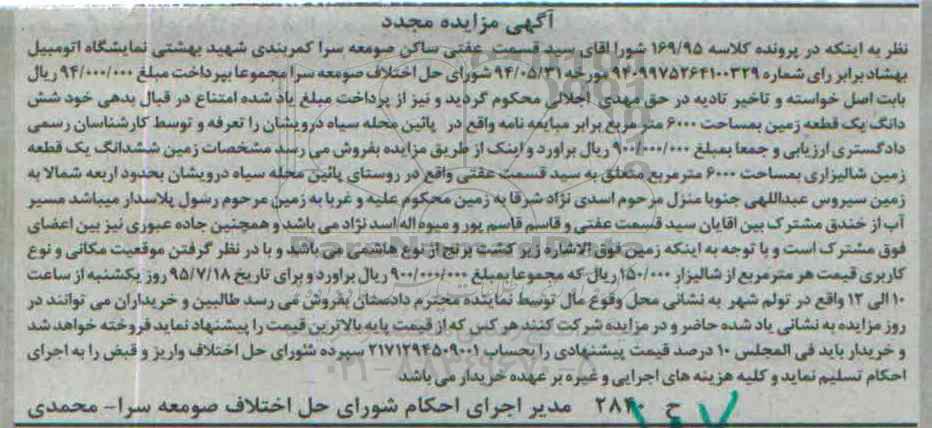 آگهی مزایده مجدد
نظر به اینکه در پرونده کلاسه ۱۶۹/۹۵ شورا اقای سید قسمت عفتی ساکن صومعه سرا کمربندی شهید بهشتی نمایشگاه اتومبیل
بهشاد برابر رای شماره ۹۴۰۹۹۷۵۲۶۴۱۰۰۳۲۹ مورخه ۹۴/۰۵/۳۱ شورای حل اختلاف صومعه سرا مجموعا بپرداخت مبلغ ۹۴/۰۰۰/۰۰۰ ریال
بابت اصل خواسته و تاخیر تادیه در حق مهدی اجلالی محکوم گردید و نیز از پرداخت مبلغ یاد شده امتناع در قبال بدهی خود شش
دانگ یک قطعه زمین بمساحت ۶۰۰۰ متر مربع برابر مبایعه نامه واقع در پائین محله سیاه درویشان را تعرفه و توسط کارشناسان رسمی
دادگستری ارزیابی و جمعا بمبلغ ۹۰۰/۰۰۰/۰۰۰ ریال براورد و اینک از طریق مزایده بفروش می رسد مشخصات زمین ششدانگ یک قطعه
زمین شالیزاری بمساحت ۶۰۰۰ مترمربع متعلق به سید قسمت عفتی واقع در روستای پائین محله سیاه درویشان بحدود اربعه شمالا به
زمین سیروس عبداللهی جنوبا منزل مرحوم اسدی نژاد شرقا به زمین محکوم علیه و غربا به زمین مرحوم رسول پلاسدار میباشد مسیر
آب از خندق مشترک بین اقایان سید قسمت عفتی و قاسم قاسم پور و میوه اله اسد نژاد می باشد و همچنین جاده عبوری نیز بین اعضای
فوق مشترک است و با توجه به اینکه زمین فوق الاشاره زیر کشت برنج از نوع هاشمی می باشد و با در نظر گرفتن موقعیت مکانی و نوع
کاربری قیمت هر متر مربع از شالیزار ۱۵۰/۰۰۰ ریال که مجموعا بمبلغ ۹۰۰/۰۰۰/۰۰۰ ریال براورد و برای تاریخ ۹۵/۷/۱۸ روز یکشنبه از ساعت
۱۰ الی ۱۲ واقع در تولم شهر به نشانی محل وقوع مال توسط نماینده محترم دادستان بفروش می رسد طالبین و خریداران می توانند در
روز مزایده به نشانی یاد شده حاضر و در مزایده شرکت کنند هر کس که از قیمت پایه بالاترین قیمت را پیشنهاد نماید فروخته خواهد شد
و خریدار باید فی المجلس ۱۰ درصد قیمت پیشنهادی را بحساب ۲۱۷۱۲۹۴۵۰۹۰۰۱ سپرده شورای حل اختلاف واریز و قبض را به اجرای
احکام تسلیم نماید و کلیه هزینه های اجرایی و غیره بر عهده خریدار می باشد
ح ۲۸۴۰ مدیر اجرای احکام شورای حل اختلاف صومعه سرا- محمدی